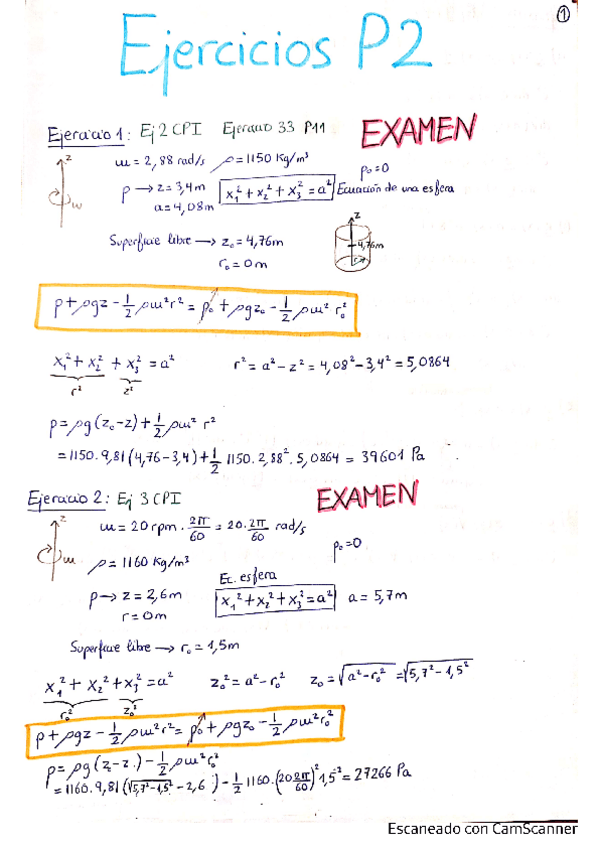 ①
Ejercicios P2
Ejercicio 1: Ej 2 CPI Ejercicio 33 P11 EXAMEN
z
w
ω = 2,88 rad/s ρ = 1150 Kg/m³
p₀ = 0
p → z = 3,4m x₁² + x₂² + x₃² = a² Ecuación de una esfera
a = 4,08m
Superficie libre → z₀ = 4,76m
r₀ = 0m
z
4,76m
r
p + ρgz - 1/2 ρω²r² = p₀ + ρgz₀ - 1/2 ρω² r₀²
x₁² + x₂² + x₃² = a² r² = a² - z² = 4,08² - 3,4² = 5,0864
r² z²
p = ρg(z₀ - z) + 1/2 ρω² r²
= 1150 . 9,81 (4,76 - 3,4) + 1/2 1150 . 2,88² . 5,0864 = 39601 Pa
Ejercicio 2: Ej 3 CPI EXAMEN
z
ω
ω = 20 rpm . 2π/60 = 20 . 2π/60 rad/s
p₀ = 0
ρ = 1160 Kg/m³
Ec. esfera
p → z = 2,6m x₁² + x₂² + x₃² = a² a = 5,7m
r = 0m
Superficie libre → r₀ = 1,5m
x₁² + x₂² + x₃² = a² z₀² = a² - r₀² z₀ = √(a² - r₀²) = √(5,7² - 1,5²)
r₀² z₀²
p + ρgz - 1/2 ρω²r² = p₀ + ρgz₀ - 1/2 ρω²r₀²
p = ρg(z₀ - z) - 1/2 ρω²r₀²
= 1160 . 9,81 (√(5,7² - 1,5²) - 2,6) - 1/2 1160 . (20 2π/60)² 1,5² = 27266 Pa
Escaneado con CamScanner